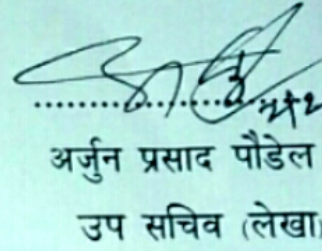 अर्जुन प्रसाद पौडेल
उप सचिव (लेखा)